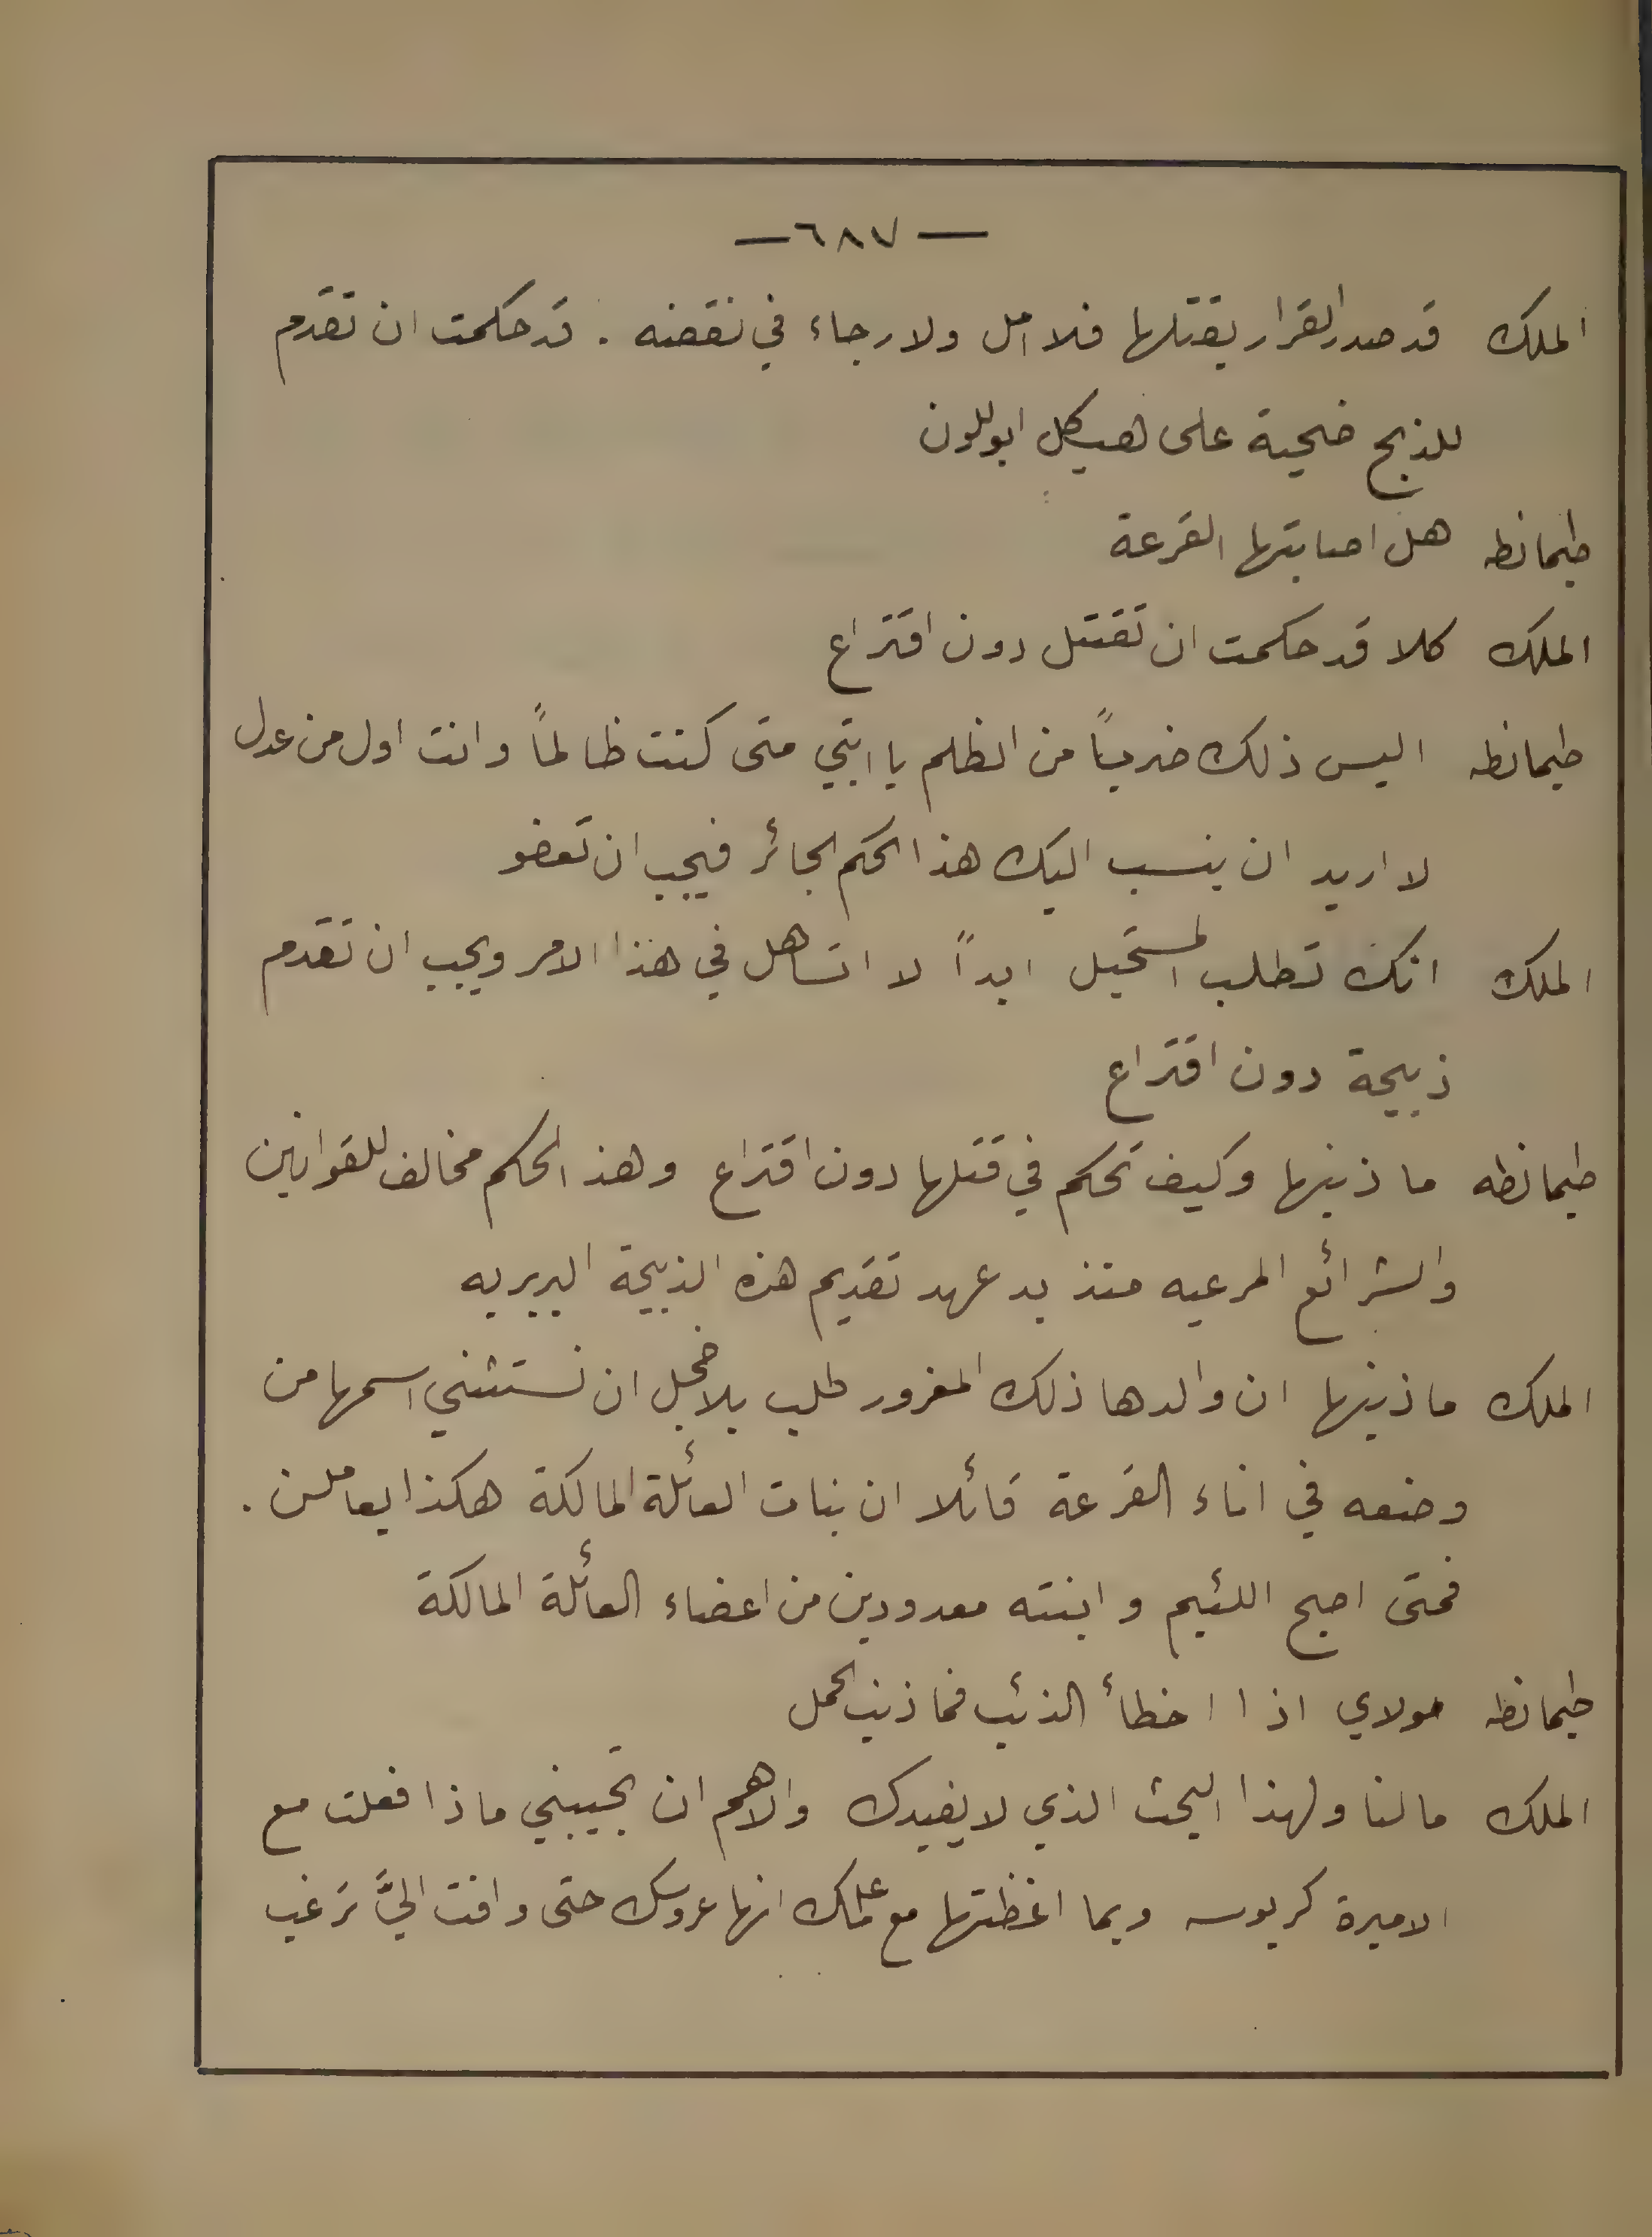 — ٦٨٧ —
الملك قد صدر القرار بقتلها فلا امل ولا رجاء في نقضه . قد حكمت ان تقدم
للذبح ضحية على هيكل ابوللون
طيمانطه هل اصابتها القرعة
الملك كلا قد حكمت ان تقتل دون اقتراع
طيمانطه اليس ذلك ضرباً من الظلم يا ابتي متى كنت ظالماً وانت اول من عدل
لا اريد ان ينسب اليك هذا الحكم الجائر فيجب ان تعفو
الملك انك تطلب المستحيل ابداً لا اتساهل في هذا الامر ويجب ان تقدم
ذبيحة دون اقتراع
طيمانطه ما ذنبها وكيف تحكم في قتلها دون اقتراع وهذ الحكم مخالف للقوانين
والشرائع المرعيه منذ بدء عهد تقديم هذه الذبيحة البربريه
الملك ما ذنبها ان والدها ذلك المغرور طلب بلا خجل ان نستثني اسمها من
وضعه في اناء القرعة قائلا ان بنات العائلة المالكة هكذا يعاملن .
فمتى اصبح اللئيم وابنته معدودين من اعضاء العائلة المالكة
طيمانطه مولاي اذا اخطأ الذئب فما ذنب الحمل
الملك مالنا ولهذا البحث الذي لا يفيدك والاهم ان تجيبني ماذا فعلت مع
الاميرة كريوسه وبما اغظتها مع علمك انها عروسك حتى وافت اليَّ ترغب